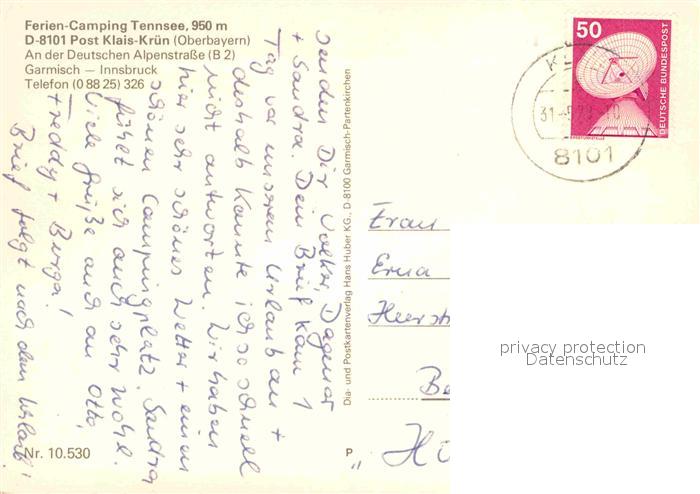 Ferien-Camping Tennsee, 950 m
D-8101 Post Klais-Krün (Oberbayern)
An der Deutschen Alpenstraße (B 2)
Garmisch — Innsbruck
Telefon (0 88 25) 326
senden Dir Volker, Dagmar
+ Sandra. Dein Brief kam 1
Tag vor unserem Urlaub an +
deshalb konnte ich so schnell
nicht antworten. Wir haben
hier sehr schönes Wetter + einen
schönen Campingplatz. Sandra
fühlt sich auch sehr wohl.
Viele Grüße auch an Otto,
Freddy + Burga!
Brief folgt nach dem Urlaub!
Nr. 10.530
Dia- und Postkartenverlag Hans Huber KG., D 8100 Garmisch-Partenkirchen
P
50
DEUTSCHE BUNDESPOST
8101
Frau
Erna
Heerst
Be
"Ho
privacy protection
Datenschutz